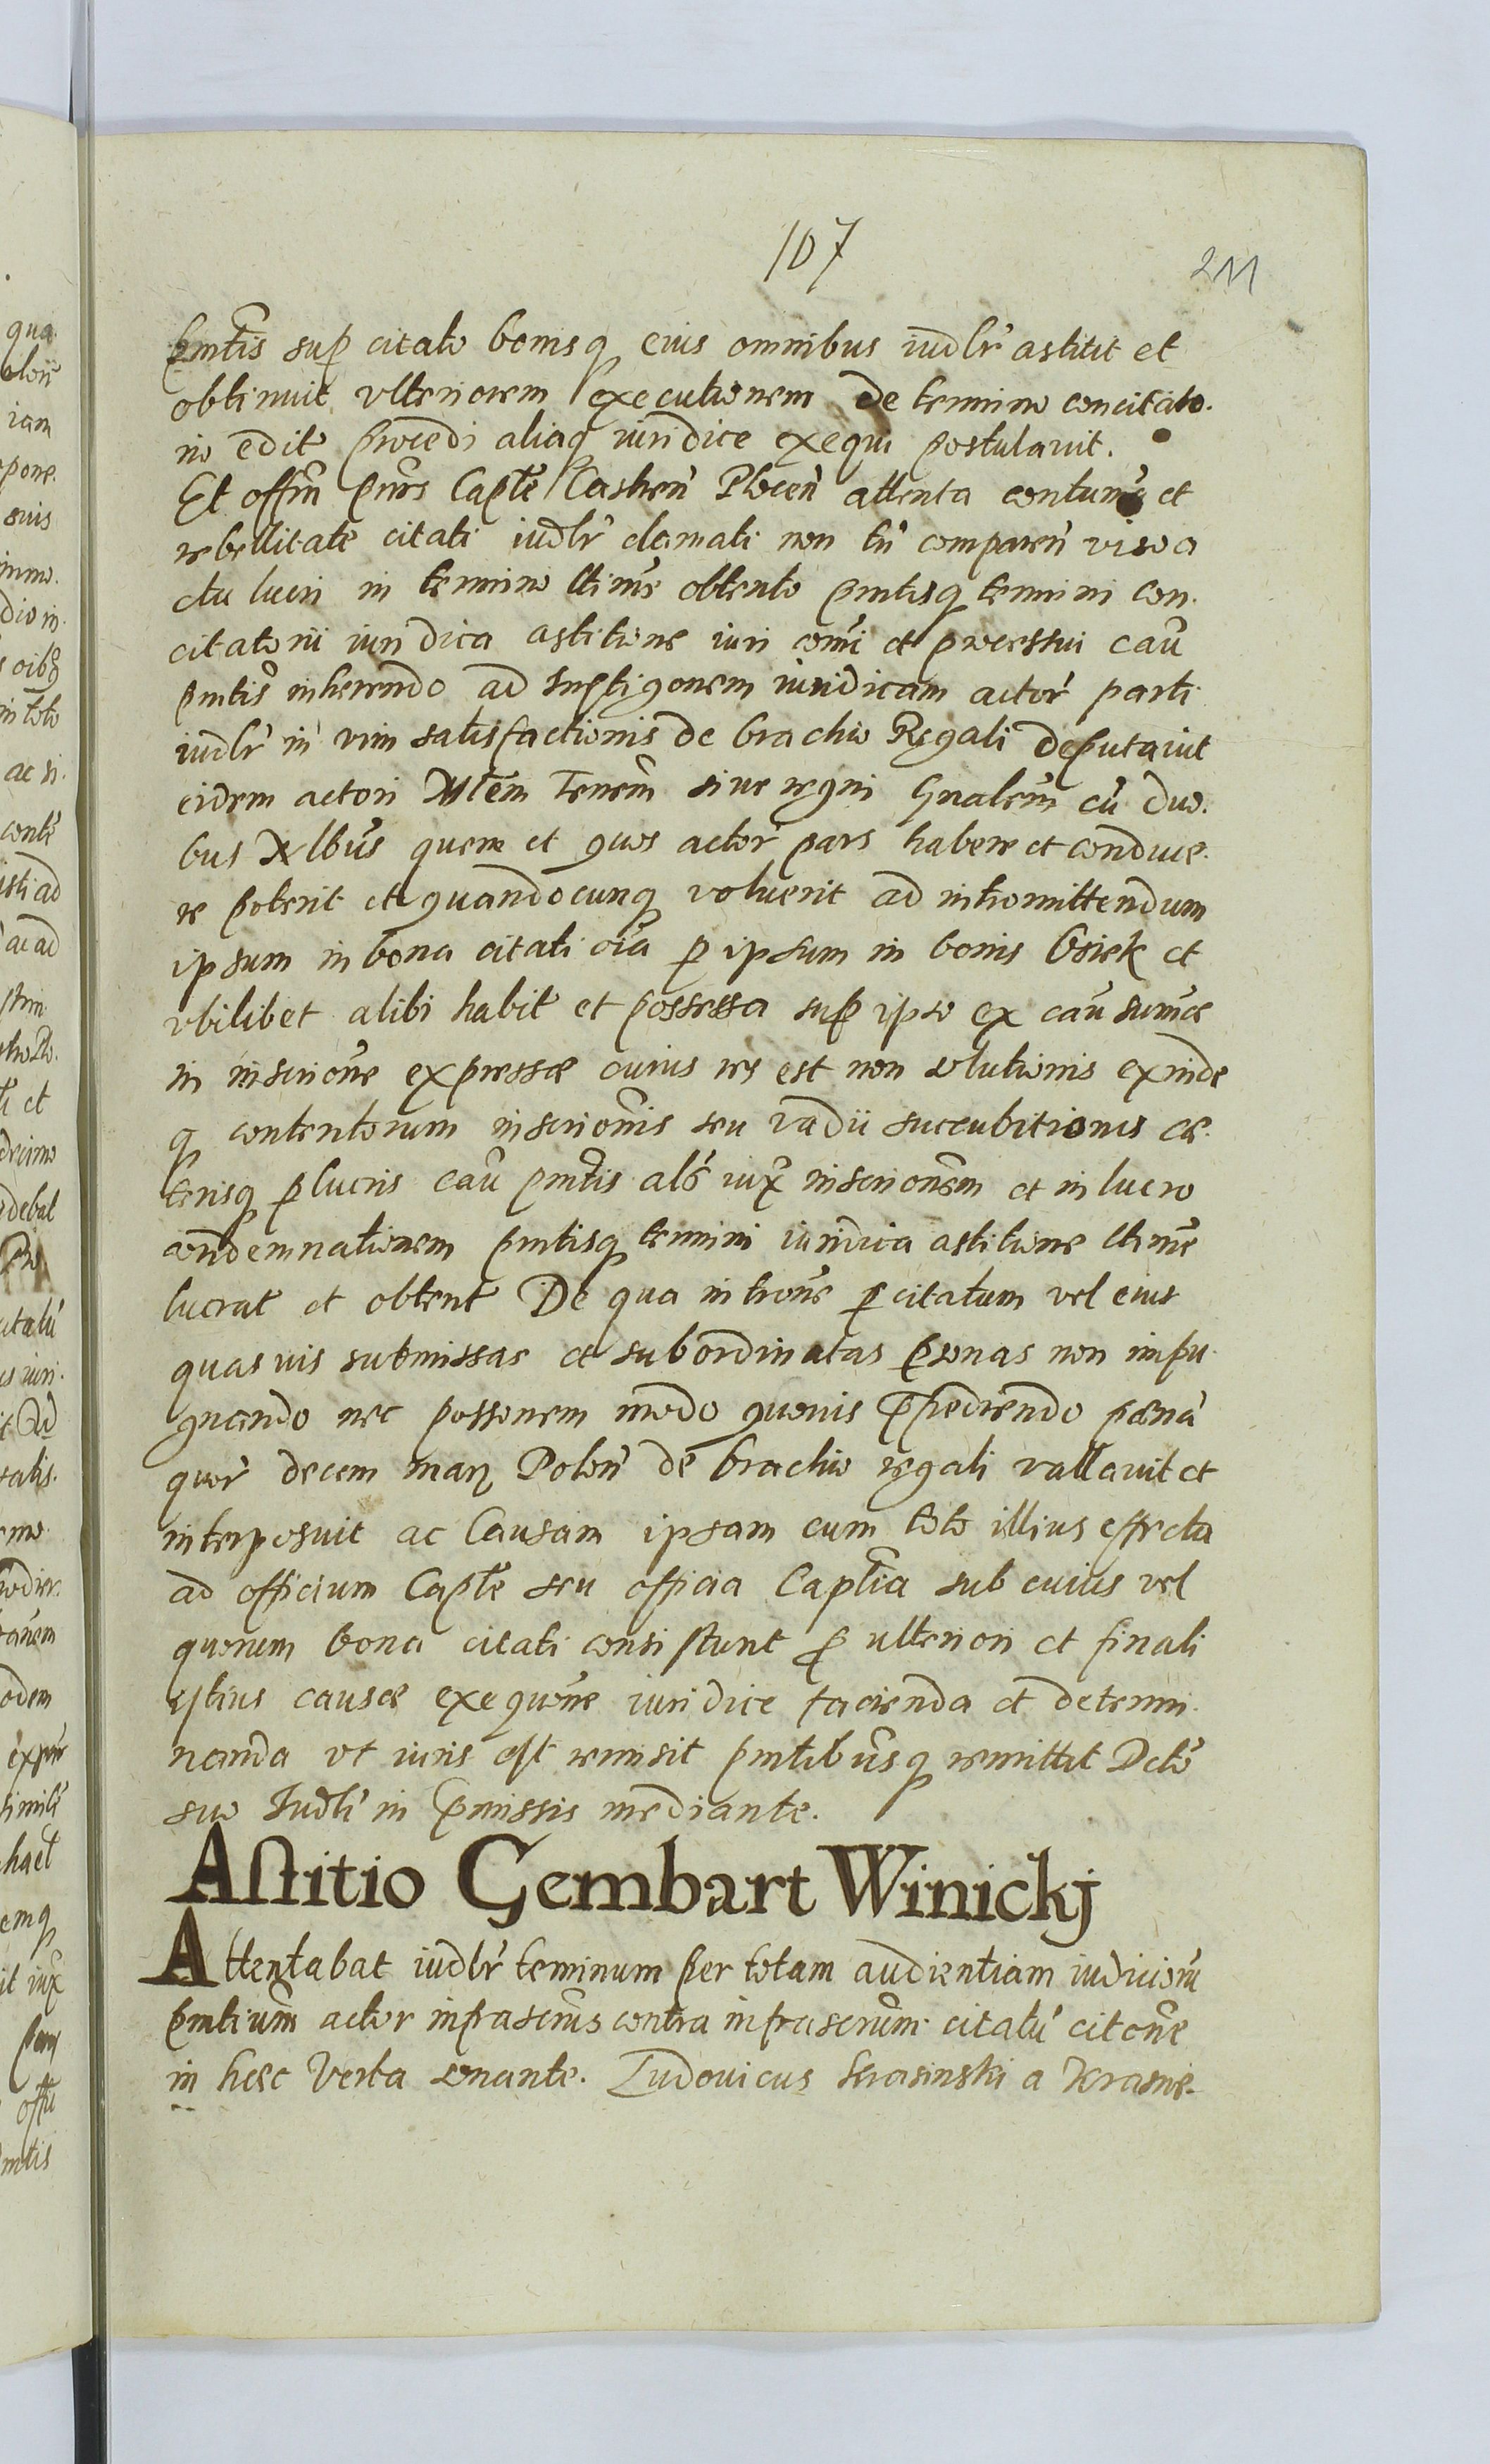 107
211
pntis sup citato bonisq eius omnibus iudlr astitit et
obtinuit vlteriorem executionem de termino concitato-
rio edit procedi aliaq iuridice exequi postulauit.
Et offm pnns Capte Castren Plocen attenta contuma et
rebellitate citati iudlr clamati non tn comparen viso a
ctu lucri in termino ltime obtento pntisq termini con-
citatorii iuridica astitione iuri comi et processui cau
pntis inherendo ad instigonem iuridicam actor parti
iudlr in vim satisfactionis de brachio Regali deputauit
eidem actori Mtem Terrem siue regni Gnalem cu duo-
bus Nlbus quem et quos actor pars habere et conduce-
re poterit et quandocunq voluerit ad intromittendum
ipsum in bona citati oia p ipsum in bonis Osiek et
vbilibet alibi habit et possessa sup ipso ex cau sumae
in inscrione expressae cuius res est non solutionis exinde
q contentorum inscrionis seu vadii succubitionis cae-
terisq p lucris cau pntis als iux inscrionem et in lucro
condemnationem pntisq termini iuridica astitione ltime
lucrat et obtent De qua introne p citatum vel eius
quasuis submissas et subordinatas psonas non impu-
gnando nec possonem modo quouis impediendo paena
quor decem marc Polon de brachio regali vallauit et
interposuit ac Causam ipsam cum toto illius effectu
ad officium Capte seu officia Captia sub cuius vel
quorum bona citati consistunt p vlteriori et finali
istius causae exequone iuridice facienda et determi-
nanda vt iuris est remisit pntibusq remittit Dcto
suo Iudli in pmissis mediante.
Astitio Gembart Winickj
Attentabat iudlr terminum per totam audientiam iudiciorum
pntium actor infrascrius contra infrascrium citatu citone
in haec verba sonante. Ludouicus Krasinski a Krasne-